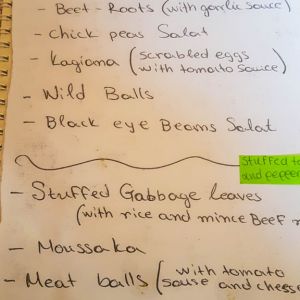 - Beet-Roots (with garlic sauce)
- chick peas Salat
- Kagiama (scrabled eggs
with tomato sauice)
- Wild Balls
- Black eye Beams Salat
Stuffed
and pepper
- Stuffed Gabbage leaves
(with rice and mince Beef
- Moussaka
- Meat balls (with tomato
sause and cheese